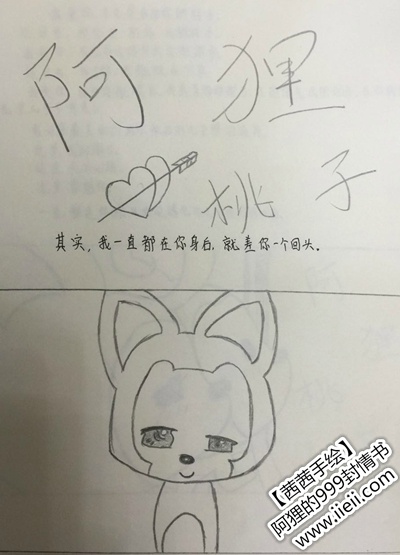 阿狸
桃子
其实，我一直都在你身后，就差你一个回头。
【茜茜手绘】
阿狸的999封情书
www.iieii.com